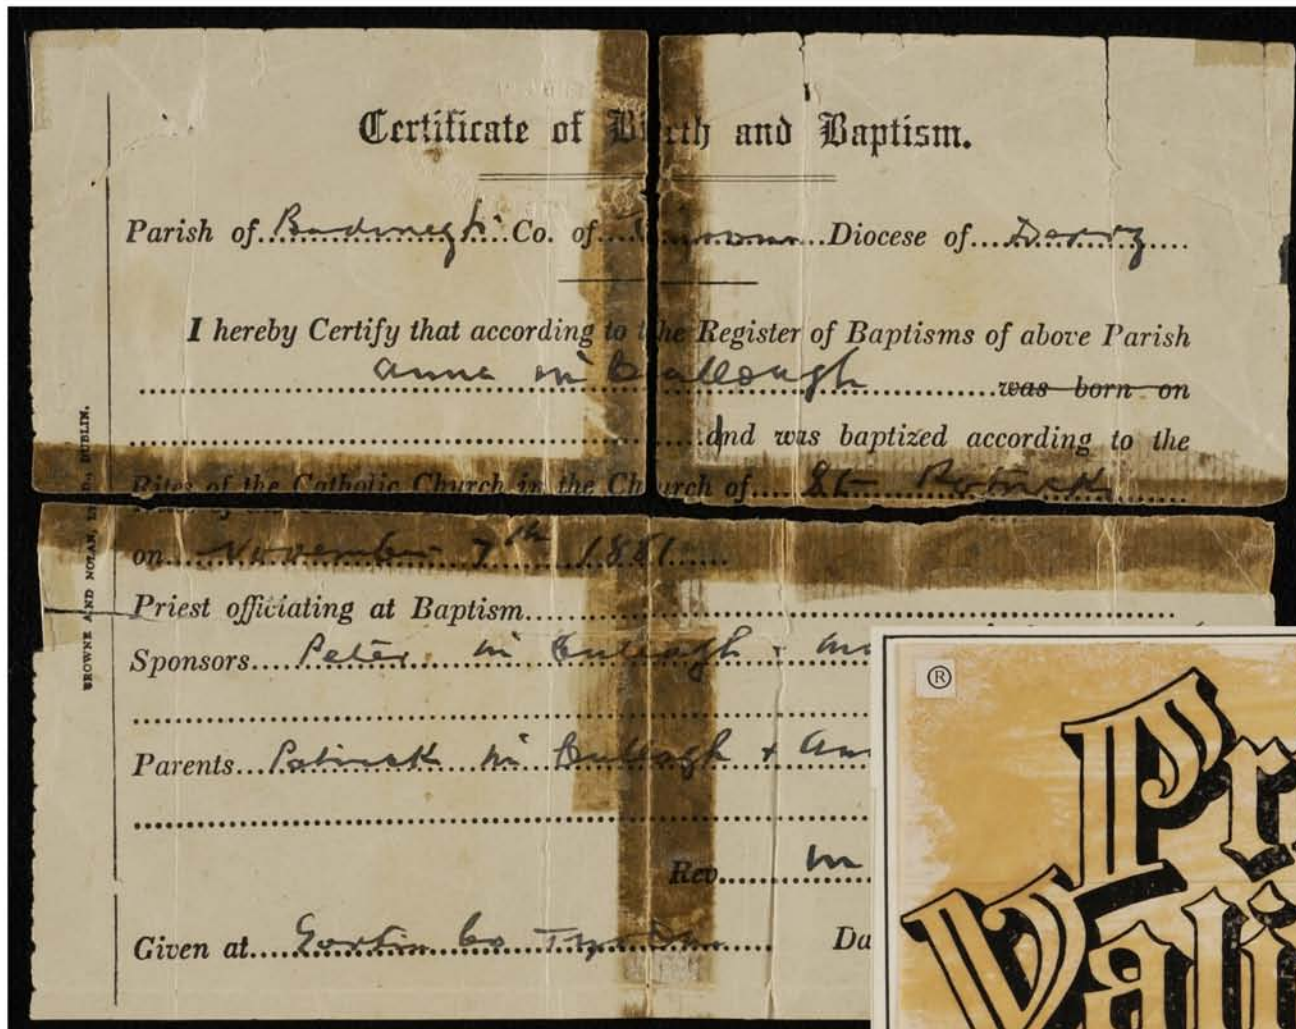 Certificate of Birth and Baptism.
Parish of Badoney Co. of Tyrone Diocese of Derry
I hereby Certify that according to the Register of Baptisms of above Parish
Anna Mc Cullough was born on
and was baptized according to the
Rites of the Catholic Church in the Church of St Patrick
on November 7th 1881
Priest officiating at Baptism
Sponsors Peter Mc Cullagh +
Parents Patrick Mc Cullagh +
Rev.
Given at Gortin Co Tyrone Da
BROWNE AND NOLAN, LTD., DUBLIN.
®
Pr
Vali